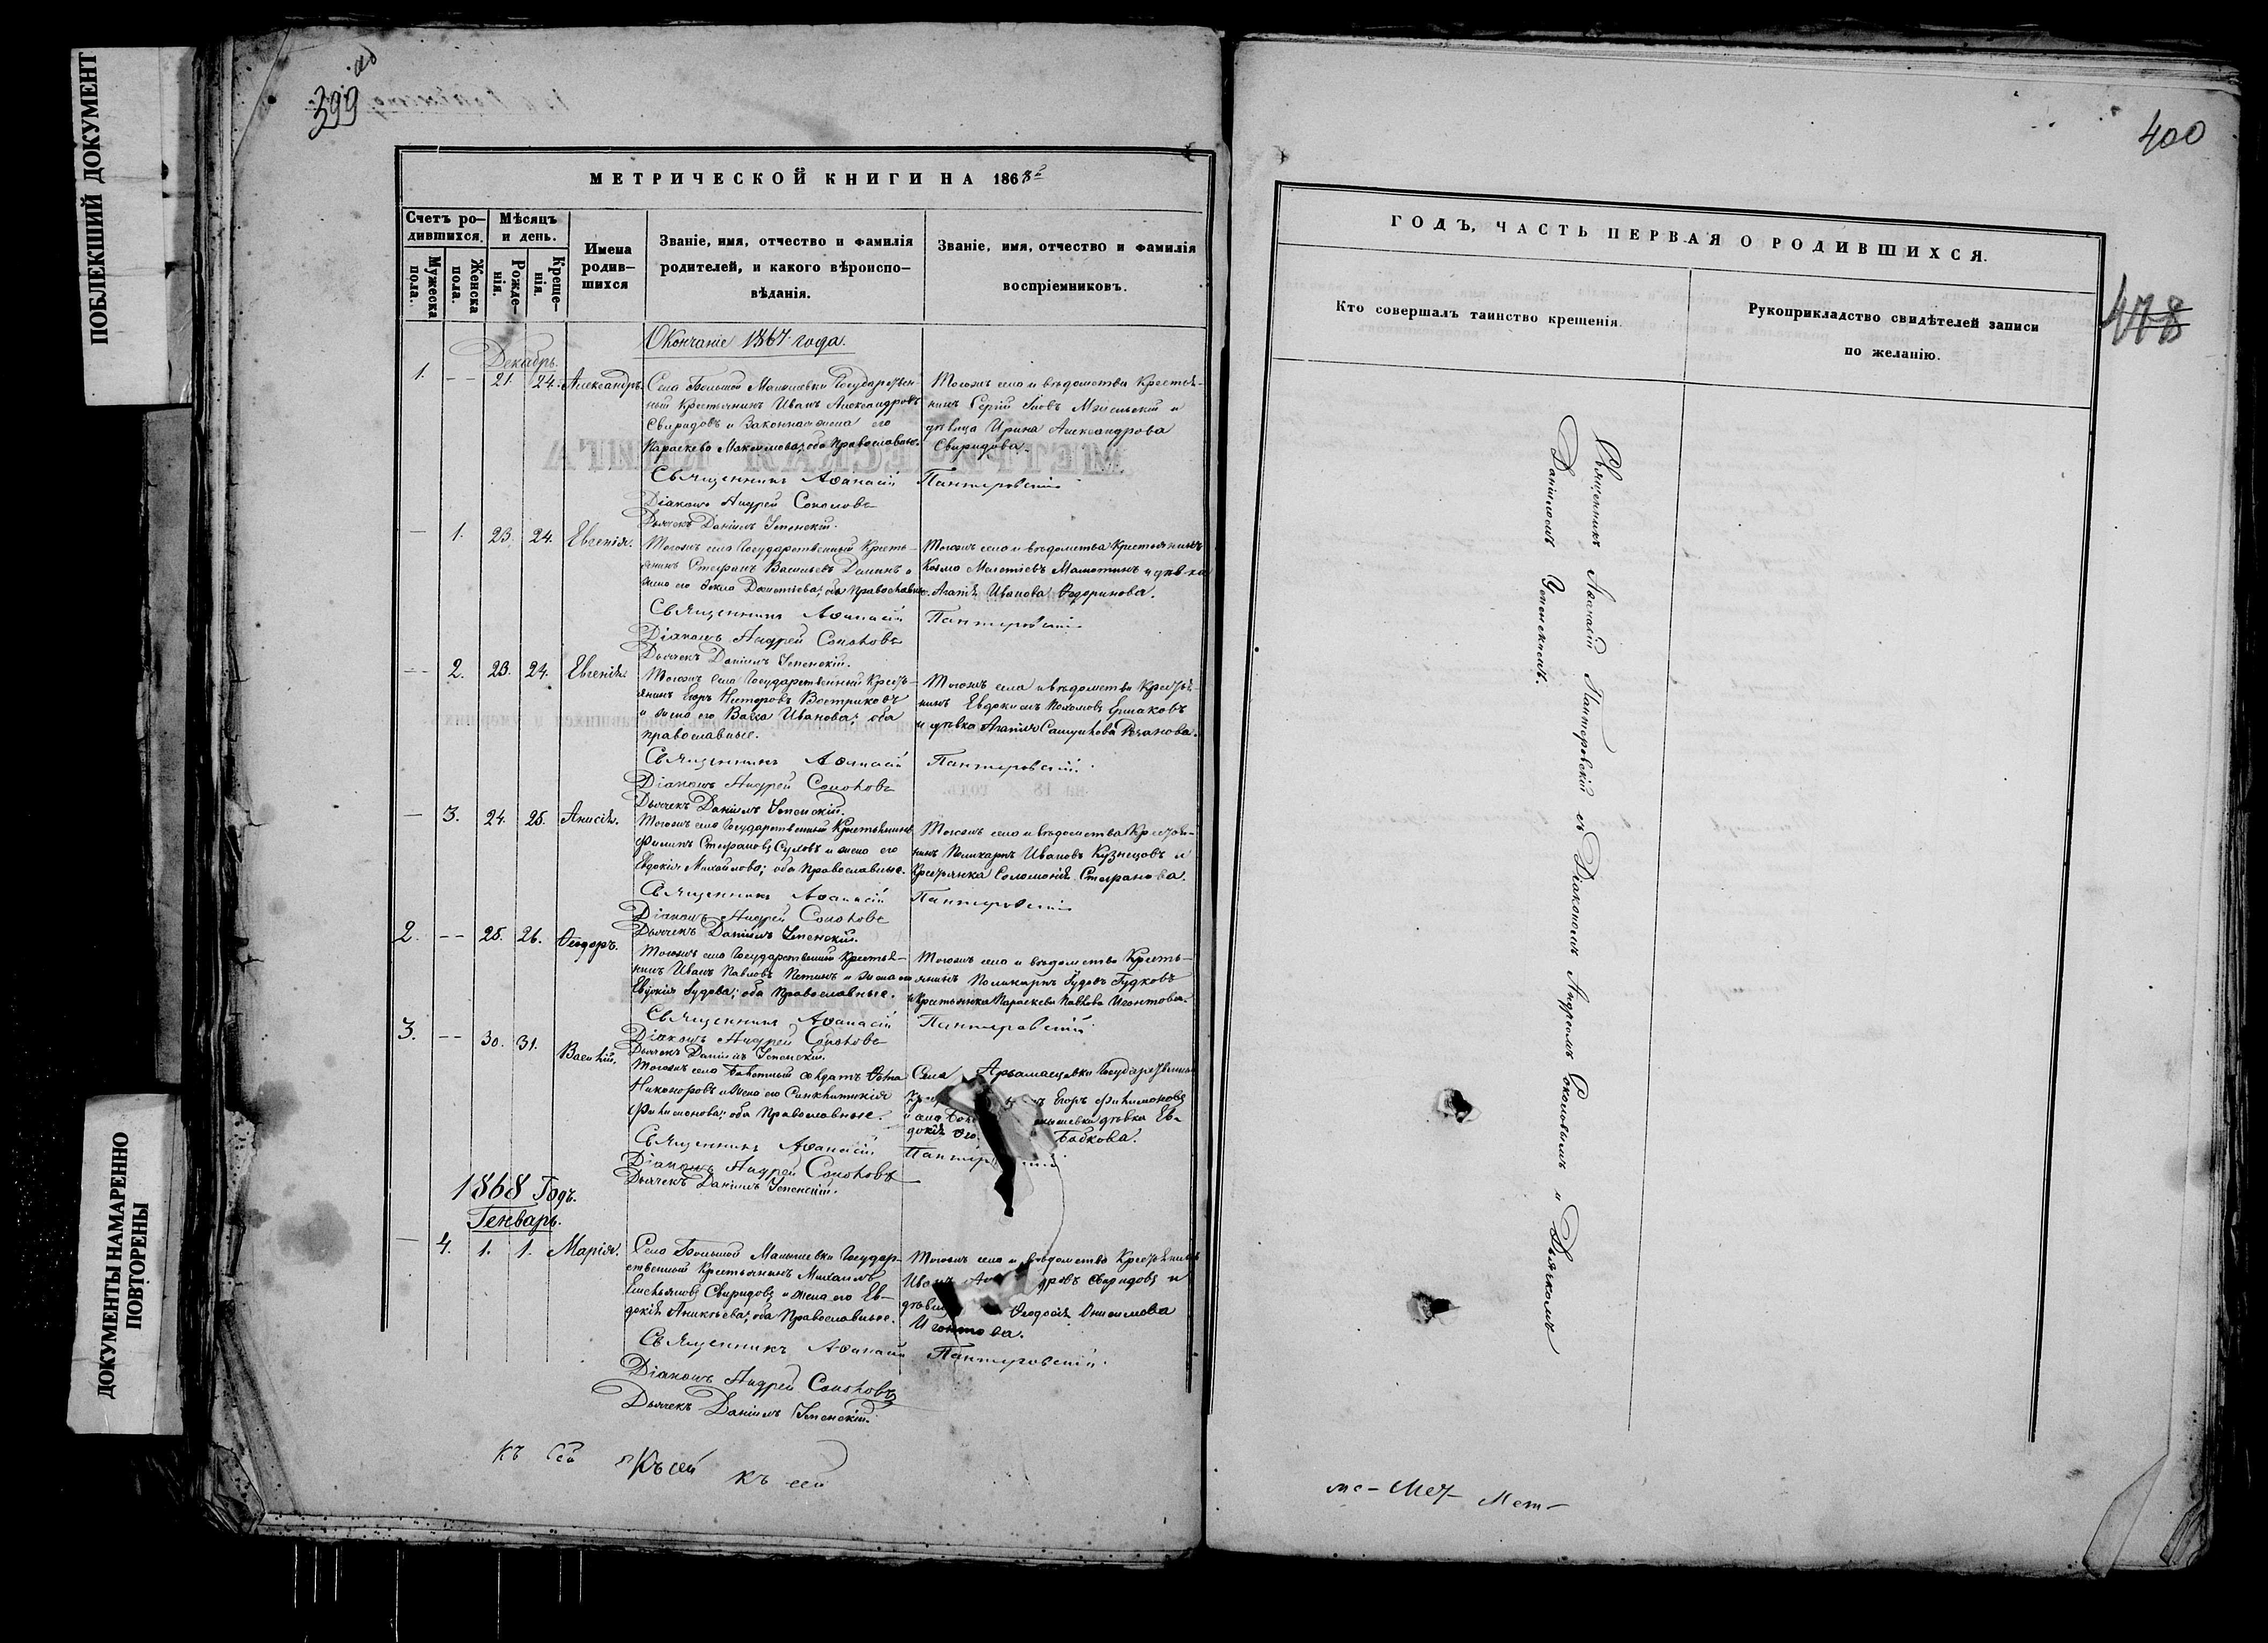 ПОБЛЕКШИЙ ДОКУМЕНТ
ДОКУМЕНТЫ НАМАРЕННО
ПОВТОРЕНЫ
399 об
МЕТРИЧЕСКОЙ КНИГИ НА 1868й
Счетъ ро-
дившихся.
Мужеска
пола.
Женска
пола.
Мѣсяцъ
и день.
Рожде-
нія.
Креще-
нія.
Имена
родив-
шихся
Званіе, имя, отчество и фамилія
родителей, и какого вѣроиспо-
вѣданія.
Званіе, имя, отчество и фамилія
воспріемниковъ.
Окончаніе 1867 года.
Декабрь.
1. -- 21. 24. Александръ.
Села Большой Малышевки Государствен-
ный Крестьянинъ Иванъ Александровъ
Свиридовъ и Законная жена его
Параскева Максимова; оба Православные.
Тогожъ села и вѣдомства Крестья-
нинъ Сергій и
дѣвица Ирина Александрова
Свиридова.
Священникъ Аѳанасій Пантеровскій
Діаконъ Андрей Соколовъ
Дьячекъ Даніилъ Успенскій.
— 1. 23. 24. Евгенія.
Тогожъ села Государственный Кресть-
янинъ Стефанъ Васильевъ Деминъ и
жена его Ѳекла оба Православные.
Тогожъ села и вѣдомства Крестьянинъ
Козма Мелетіевъ и дѣв-ка
Агапія Иванова
Священникъ Аѳанасій Пантеровскій
Діаконъ Андрей Соколовъ
Дьячекъ Даніилъ Успенскій.
— 2. 23. 24. Евгенія.
Тогожъ села Государственный Кресть-
янинъ Егоръ Несторовъ Востриковъ
и жена его Васса Иванова; оба
православные.
Тогожъ села и вѣдомства Крестья-
нинъ Евдокимъ Пахомовъ Ермаковъ
и дѣвка Агапія
Священникъ Аѳанасій Пантеровскій
Діаконъ Андрей Соколовъ
Дьячекъ Даніилъ Успенскій.
— 3. 24. 25. Анисія.
Тогожъ села Государственный Крестьянинъ
Филипъ Стефановъ Сусловъ и жена его
Евдокія Михайлова; оба Православные.
Тогожъ села и вѣдомства Крестья-
нинъ Поликарпъ Ивановъ Кузнецовъ и
Крестьянка Соломонія Стефанова.
Священникъ Аѳанасій Пантеровскій
Діаконъ Андрей Соколовъ
Дьячекъ Даніилъ Успенскій.
2. -- 25. 26. Ѳеодоръ.
Тогожъ села Государственный Крестья-
нинъ Иванъ Павловъ Петинъ и жена его
Евдокія Іудова; оба Православные.
Тогожъ села и вѣдомства Кресть-
янинъ Поликарпъ Іудовъ Гудковъ
и Крестьянка Параскева Павлова
Священникъ Аѳанасій Пантеровскій
Діаконъ Андрей Соколовъ
Дьячекъ Даніилъ Успенскій.
3. -- 30. 31. Василій.
Тогожъ села солдатъ Ѳома
Никаноровъ и жена его Синклитикія
Филимонова; оба Православные.
Села Арзамасцевки Государственный
Егоръ Филимоновъ
дѣвка Ев-
докія Бабкова.
Священникъ Аѳанасій Пантеровскій
Діаконъ Андрей Соколовъ
Дьячекъ Даніилъ Успенскій.
1868 Годъ.
Генварь.
— 4. 1. 1. Марія.
Села Большой Малышевки Государ-
ственный Крестьянинъ Михаилъ
Емельяновъ Свиридовъ и жена его Ев-
докія Аникіева; оба Православные.
Тогожъ села и вѣдомства Крестьянинъ
Иванъ Свиридовъ и
Ѳеодосія Онисимова
Священникъ Аѳанасій Пантеровскій
Діаконъ Андрей Соколовъ
Дьячекъ Даніилъ Успенскій.
Къ Сей Къ сей Къ сей
400
478
ГОДЪ, ЧАСТЬ ПЕРВАЯ О РОДИВШИХСЯ.
Кто совершалъ таинство крещенія.
Рукоприкладство свидѣтелей записи
по желанію.
Священникъ Аѳанасій Пантеровскій съ Діакономъ Андреемъ Соколовымъ и Дьячкомъ
Даніиломъ Успенскимъ.
ме- Мет- Мет-